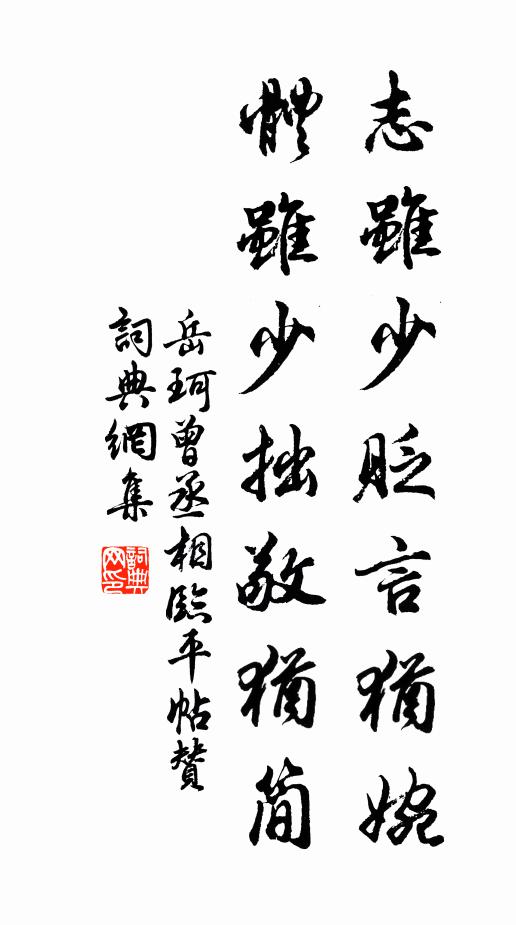 志雖少貶言猶婉
體雖少拙敬猶簡
岳珂曾丞相臨平帖贊
詞典網集
詞典网印